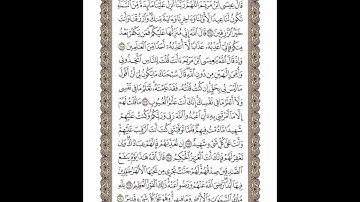 قَالَ عِيسَى ٱبْنُ مَرْيَمَ ٱللَّهُمَّ رَبَّنَآ أَنزِلْ عَلَيْنَا مَآئِدَةً مِّنَ ٱلسَّمَآءِ
تَكُونُ لَنَا عِيدًا لِّأَوَّلِنَا وَءَاخِرِنَا وَءَايَةً مِّنكَ وَٱرْزُقْنَا وَأَنتَ
خَيْرُ ٱلرَّٰزِقِينَ ١١٤ قَالَ ٱللَّهُ إِنِّى مُنَزِّلُهَا عَلَيْكُمْ فَمَن يَكْفُرْ بَعْدُ
مِنكُمْ فَإِنِّىٓ أُعَذِّبُهُۥ عَذَابًا لَّآ أُعَذِّبُهُۥٓ أَحَدًا مِّنَ ٱلْعَٰلَمِينَ ١١٥
وَإِذْ قَالَ ٱللَّهُ يَٰعِيسَى ٱبْنَ مَرْيَمَ ءَأَنتَ قُلْتَ لِلنَّاسِ ٱتَّخِذُونِى
وَأُمِّىَ إِلَٰهَيْنِ مِن دُونِ ٱللَّهِ قَالَ سُبْحَٰنَكَ مَا يَكُونُ لِىٓ أَنْ أَقُولَ
مَا لَيْسَ لِى بِحَقٍّ إِن كُنتُ قُلْتُهُۥ فَقَدْ عَلِمْتَهُۥ تَعْلَمُ مَا فِى نَفْسِى
وَلَآ أَعْلَمُ مَا فِى نَفْسِكَ إِنَّكَ أَنتَ عَلَّٰمُ ٱلْغُيُوبِ ١١٦ مَا قُلْتُ لَهُمْ
إِلَّا مَآ أَمَرْتَنِى بِهِۦٓ أَنِ ٱعْبُدُوا۟ ٱللَّهَ رَبِّى وَرَبَّكُمْ وَكُنتُ عَلَيْهِمْ
شَهِيدًا مَّا دُمْتُ فِيهِمْ فَلَمَّا تَوَفَّيْتَنِى كُنتَ أَنتَ ٱلرَّقِيبَ عَلَيْهِمْ
وَأَنتَ عَلَىٰ كُلِّ شَىْءٍ شَهِيدٌ ١١٧ إِن تُعَذِّبْهُمْ فَإِنَّهُمْ عِبَادُكَ وَإِن
تَغْفِرْ لَهُمْ فَإِنَّكَ أَنتَ ٱلْعَزِيزُ ٱلْحَكِيمُ ١١٨ قَالَ ٱللَّهُ هَٰذَا يَوْمُ يَنفَعُ
ٱلصَّٰدِقِينَ صِدْقُهُمْ لَهُمْ جَنَّٰتٌ تَجْرِى مِن تَحْتِهَا ٱلْأَنْهَٰرُ خَٰلِدِينَ
فِيهَآ أَبَدًا رَّضِىَ ٱللَّهُ عَنْهُمْ وَرَضُوا۟ عَنْهُ ذَٰلِكَ ٱلْفَوْزُ ٱلْعَظِيمُ ١١٩
لِلَّهِ مُلْكُ ٱلسَّمَٰوَٰتِ وَٱلْأَرْضِ وَمَا فِيهِنَّ وَهُوَ عَلَىٰ كُلِّ شَىْءٍ قَدِيرٌۢ ١٢٠